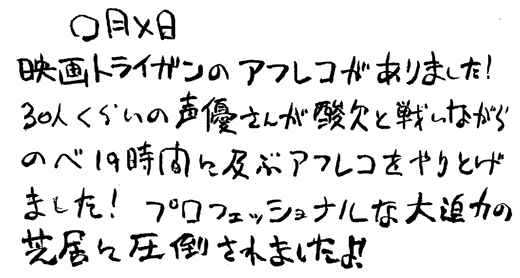 〇月×日
映画トライガンのアフレコがありました!
30人くらいの声優さんが酸欠と戦いながら
のべ19時間に及ぶアフレコをやりとげ
ました! プロフェッショナルな大迫力の
芝居に圧倒されましたよ!!